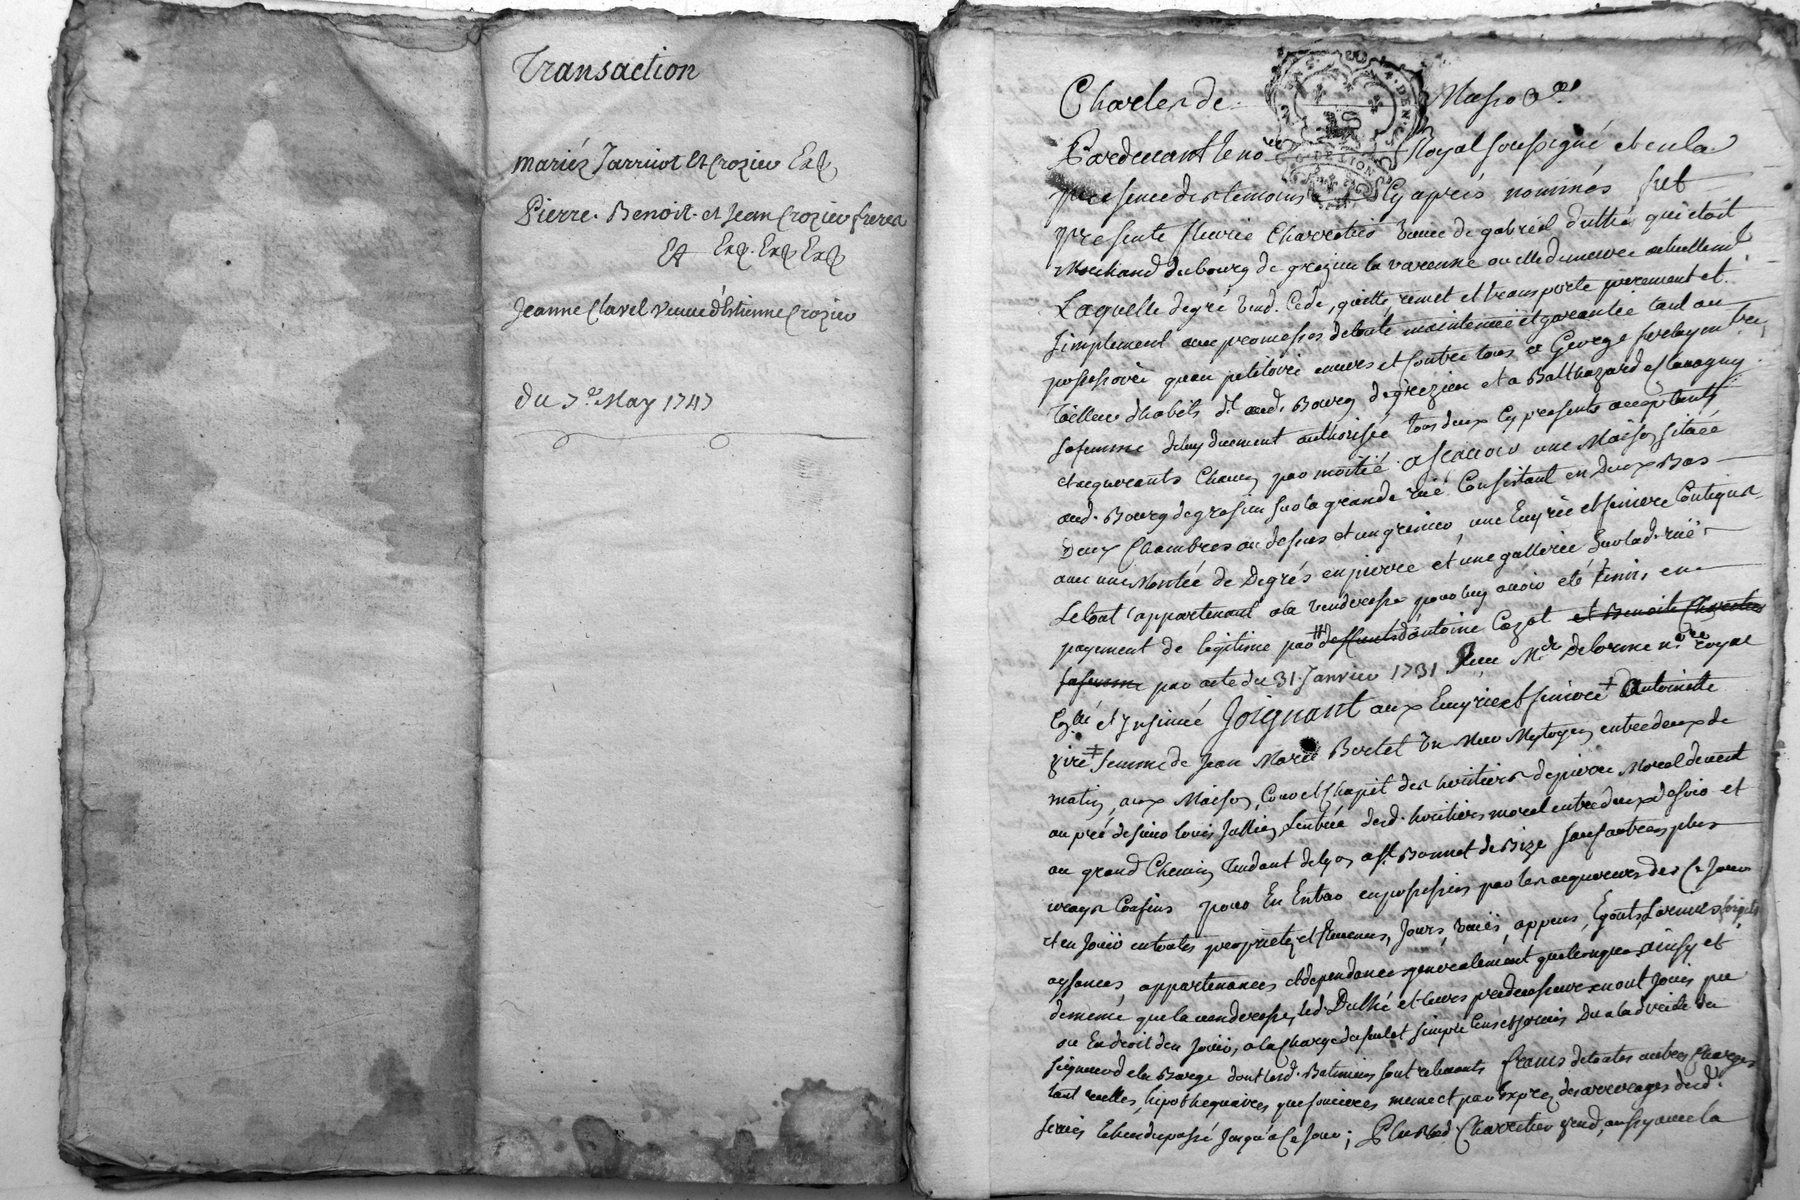 Transaction
mariés Jarriot et Crozier Exp
Pierre. Benoit. et Jean Crozier freres
et Exp. Exp Exp
Jeanne Clavel veuve d'Estienne Crozier
du 7e May 1747
Charles de Masso &a
Pardevant le nore Royal soussigné et en la
presence des temoins cy après nommés fut
presente fleurie Charretier veuve de gabriel duthé qui étoit
Marchand du bourg de grezieu la varenne ou elle demeure actuellemt
Laquelle de gré vend. Cede, quitte remet et transporte purement et
simplement avec promesses de toute maintenüe et garantie tant au
possessoire quau petitoire envers et contre tous a George
tailleur d'habits dt aud. Bourg de grezieu et a Balthazarde
sa femme deluy duement authorisée tous deux cy presents acceptants
et acquerants chacun par moitié ascavoir une Maison située
aud. Bourg de grezieu sur la grande rüe Consistant en deux Bas
deux Chambres au dessus et un grenier, une Ecuyrie et finiere Contigus
avec une Montée de Degrés en pierre et une gallerie sur lad. rüe
Le tout appartenant a la venderesse pour luy avoir été remis en
payement de legitime par # deffunts d'antoine Cozot et Benoite Charretier
sa femme par acte du 31. Janvier 1731 Reçu Me Delorme nore royal
Joignant aux Ecuyrie et finiere ‡ Antoinette
‡ femme de Jean Marie Bertet un Mur Mytoyen entredeux de
matin, aux Maison, Cour et Chapit des heritiers de pierre Morel de vent
au pré de sieur louis Jullien, Lentrée desd. heritiers morel entredeux de soir et
au grand Chemin tendant de Lyon a St Bonnet de Bize sauf autres plus
vrays Confins pour En Entrer en possession par les acquereurs des Ce Jour
et en Joüir en toutes proprietez et Revenus, Jours, vües, appens, Egouts, Larmiers,
aysances, appartenances et dependances generalement quelconques ainsy et
de meme que la venderesse, led. Duthé et leurs predecesseurs en ont Joüi pu
ou En droit den Joüir, a la Charge du seul et simple Cens et servis Du a la directe du
seigneur de la Barge dont lesd. Batiments sont relevants francs de toutes autres Charges
tant reelles, hipothequaires, que foncieres meme et par Exprez des arrerages desd.
servis Echeus du passé Jusqu'a Ce Jour; Plus lad. Charretier vend, aussy avec la